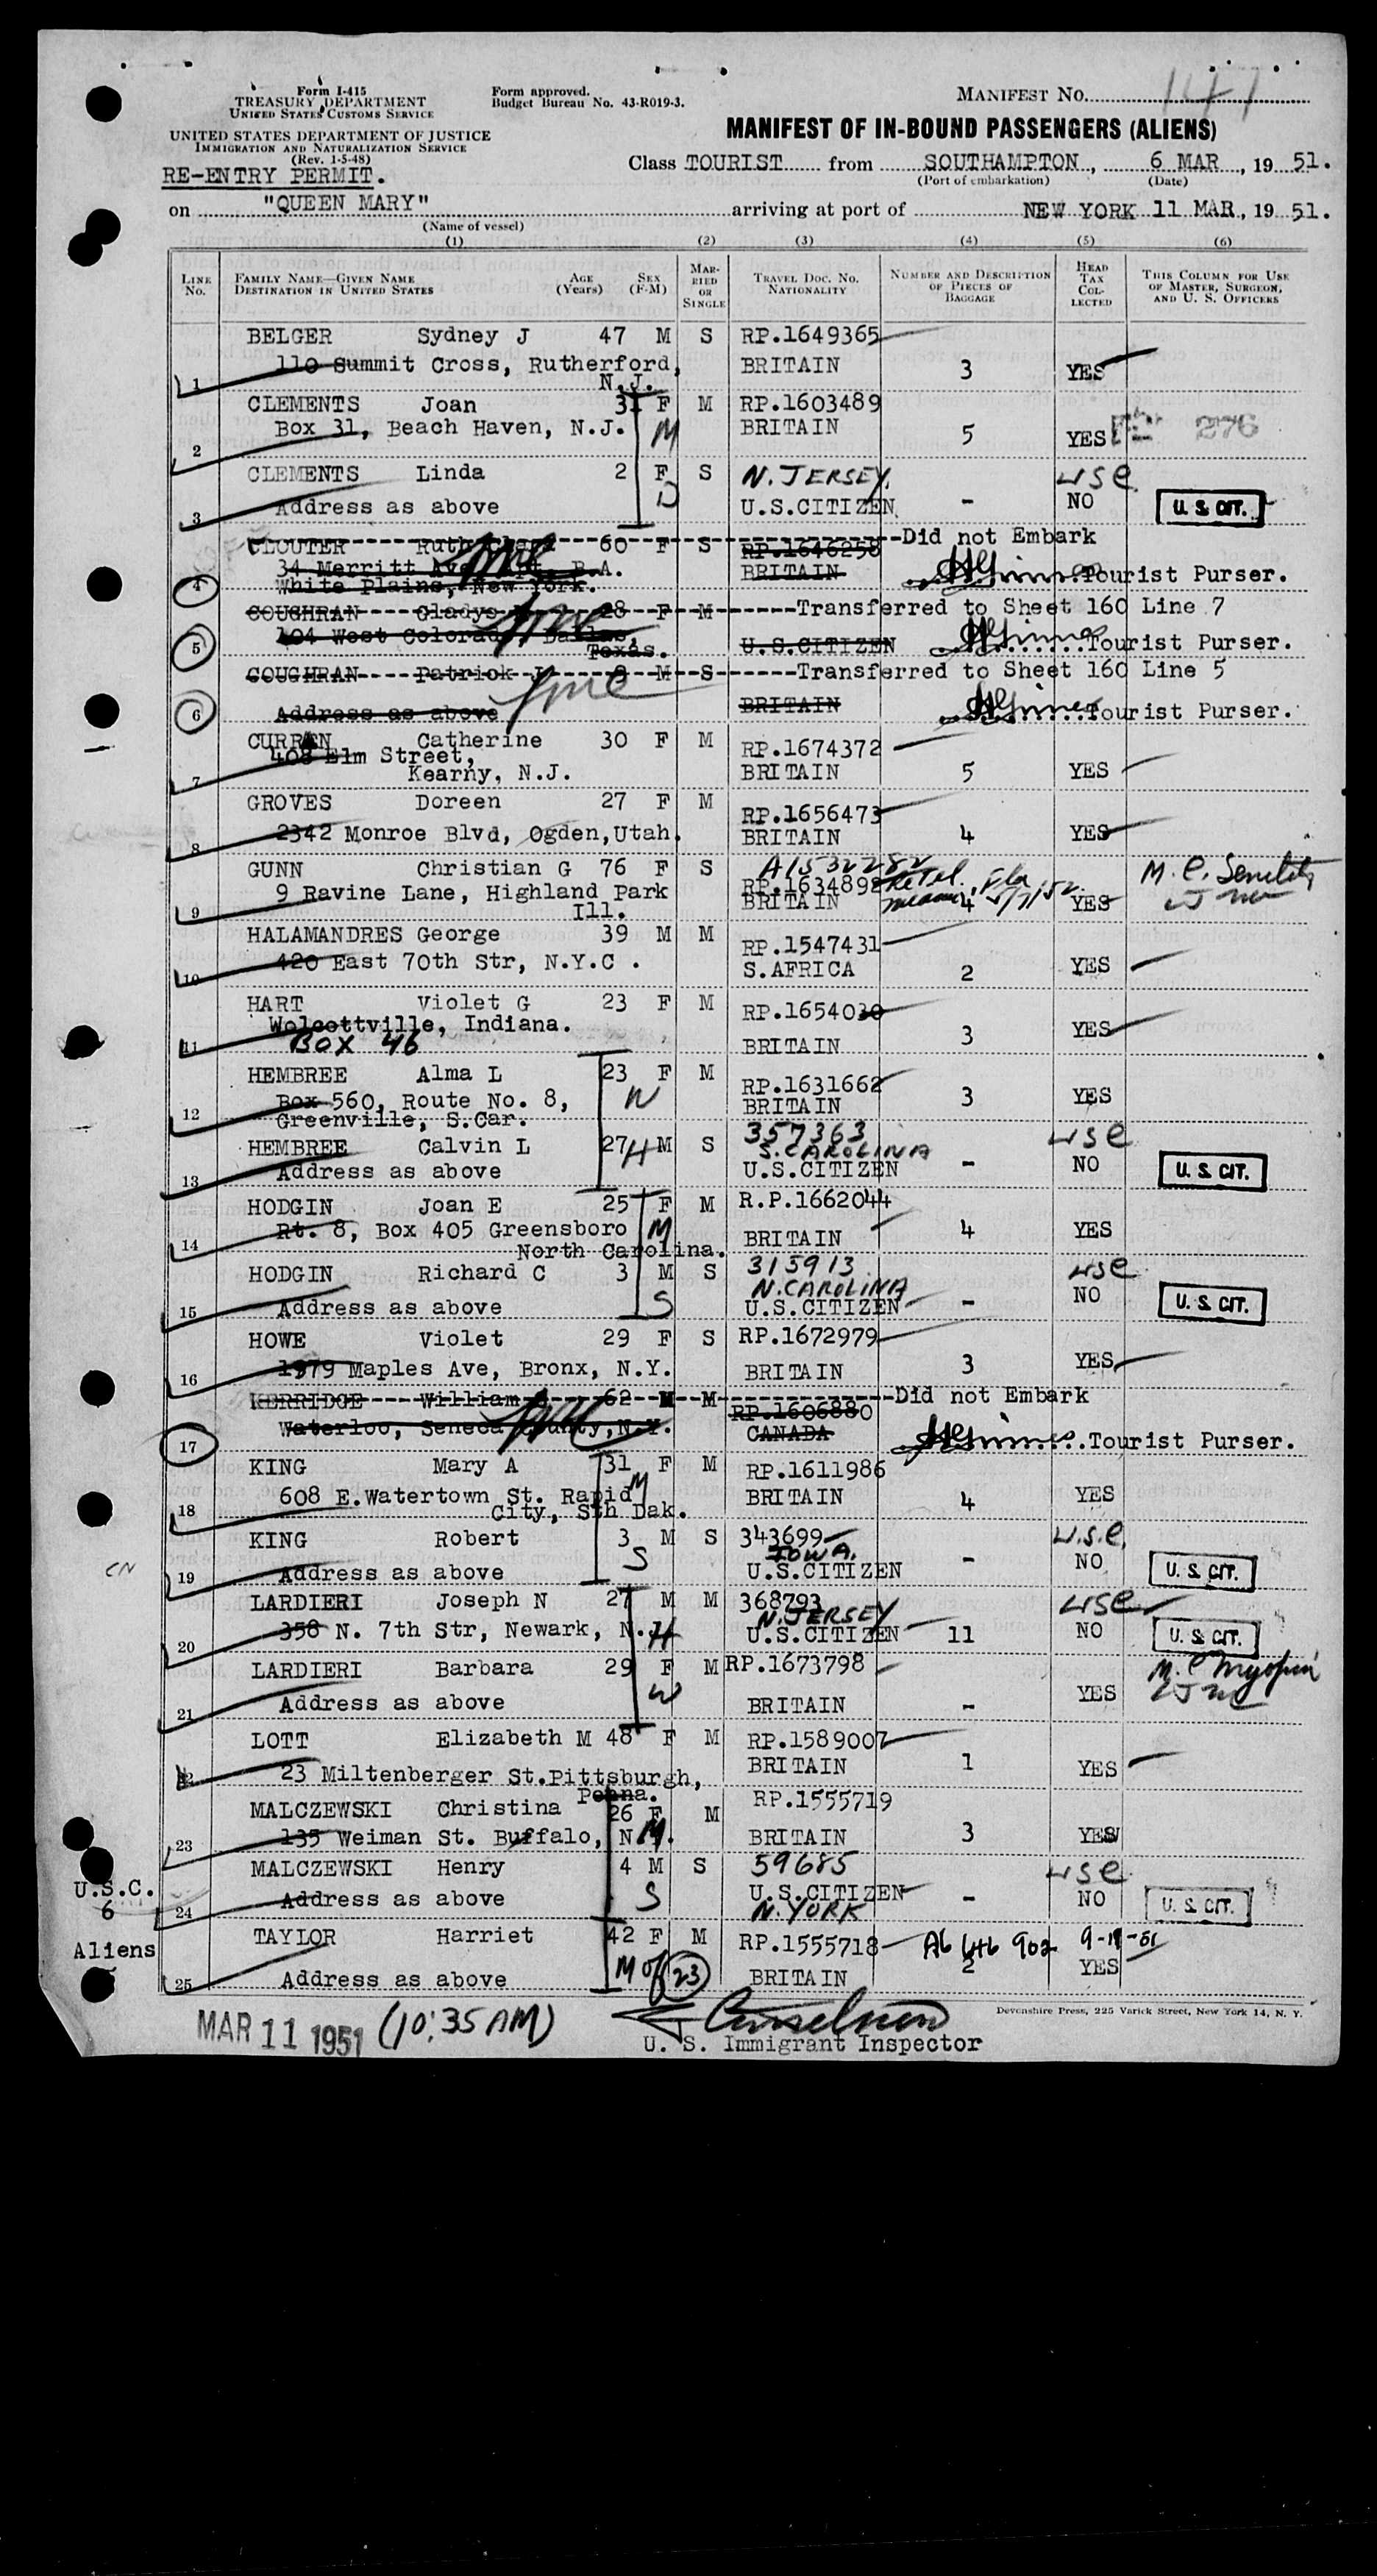 Form I-415
TREASURY DEPARTMENT
UNITED STATES CUSTOMS SERVICE
UNITED STATES DEPARTMENT OF JUSTICE
IMMIGRATION AND NATURALIZATION SERVICE
(Rev. 1-5-48)
RE-ENTRY PERMIT.
Form approved.
Budget Bureau No. 43-R019-3.
MANIFEST NO. 141
MANIFEST OF IN-BOUND PASSENGERS (ALIENS)
Class TOURIST from SOUTHAMPTON, 6 MAR, 19 51.
(Port of embarkation) (Date)
on "QUEEN MARY" arriving at port of NEW YORK 11 MAR, 19 51.
(Name of vessel)
(1) (2) (3) (4) (5) (6)
LINE NO. FAMILY NAME—GIVEN NAME DESTINATION IN UNITED STATES AGE (Years) SEX (F-M) MARRIED OR SINGLE TRAVEL DOC. NO. NATIONALITY NUMBER AND DESCRIPTION OF PIECES OF BAGGAGE HEAD TAX COLLECTED THIS COLUMN FOR USE OF MASTER, SURGEON, AND U. S. OFFICERS
BELGER Sydney J 47 M S RP.1649365
110 Summit Cross, Rutherford, BRITAIN 3 YES
1 N.J.
CLEMENTS Joan 31 F M RP.1603489
Box 31, Beach Haven, N.J. M BRITAIN 5 YES 276
2
CLEMENTS Linda 2 F S N. JERSEY. USC
3 Address as above D U.S.CITIZEN - NO U. S. CIT.
CLOUTER Ruth 60 F S RP.1646258 Did not Embark
34 Merritt Ave B.A. BRITAIN Tourist Purser.
4 White Plains, New York.
COUGHRAN Gladys 28 F M Transferred to Sheet 160 Line 7
104 West Colorado, Dallas, U.S.CITIZEN Tourist Purser.
5 Texas.
COUGHRAN Patrick M S Transferred to Sheet 160 Line 5
6 Address as above BRITAIN Tourist Purser.
CURRAN Catherine 30 F M RP.1674372
408 Elm Street,
7 Kearny, N.J. BRITAIN 5 YES
GROVES Doreen 27 F M RP.1656473
8 2342 Monroe Blvd, Ogden,Utah. BRITAIN 4 YES
GUNN Christian G 76 F S A1532282
9 Ravine Lane, Highland Park RP.1634898 Fla M.C. Senility
9 Ill. BRITAIN 4 YES
HALAMANDRES George 39 M M RP.1547431
10 420 East 70th Str, N.Y.C . S.AFRICA 2 YES
HART Violet G 23 F M RP.1654030
Wolcottville, Indiana. 3 YES
11 BOX 46 BRITAIN
HEMBREE Alma L 23 F M RP.1631662
12 Box 560, Route No. 8, W BRITAIN 3 YES
Greenville, S.Car.
HEMBREE Calvin L 27 H M S 357363 USC
S. CAROLINA
13 Address as above U.S.CITIZEN - NO U. S. CIT.
HODGIN Joan E 25 F M R.P.1662044
14 Rt. 8, Box 405 Greensboro M BRITAIN 4 YES
North Carolina.
HODGIN Richard C 3 M S 315913 USC
N. CAROLINA
15 Address as above S U.S.CITIZEN - NO U. S. CIT.
HOWE Violet 29 F S RP.1672979
16 1979 Maples Ave, Bronx, N.Y. BRITAIN 3 YES
KERRIDGE William 62 M M RP.1606880 Did not Embark
17 Waterloo, Seneca County,N.Y. CANADA Tourist Purser.
KING Mary A 31 F M RP.1611986
18 608 E.Watertown St. Rapid M BRITAIN 4 YES
City, Sth Dak.
KING Robert 3 M S 343699 U.S.C.
IOWA.
CN 19 Address as above S U.S.CITIZEN - NO U. S. CIT.
LARDIERI Joseph N 27 M M 368793 USC
N. JERSEY
20 358 N. 7th Str, Newark, N.J. H U.S.CITIZEN 11 NO U. S. CIT.
LARDIERI Barbara 29 F M RP.1673798 M.C Myopia
21 Address as above W BRITAIN - YES
LOTT Elizabeth M 48 F M RP.1589007
22 23 Miltenberger St.Pittsburgh, BRITAIN 1 YES
Penna.
MALCZEWSKI Christina 26 F M RP.1555719
23 135 Weiman St. Buffalo, N.Y. M BRITAIN 3 YES
MALCZEWSKI Henry 4 M S 59685 USC
24 Address as above S U.S.CITIZEN - NO U. S. CIT.
N. YORK
U.S.C.
6
TAYLOR Harriet 42 F M RP.1555718 A6 646 902 9-19-51
25 Address as above M of 23 BRITAIN 2 YES
Aliens
MAR 11 1951 (10:35 AM)
U. S. Immigrant Inspector
Devonshire Press, 225 Varick Street, New York 14, N. Y.